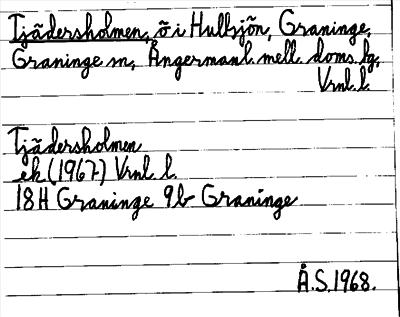 Tjädersholmen, ö i Hullsjön, Graninge,
Graninge sn, Ångermanl. mell. doms. bg,
Vrnl. l.
Tjädersholmen
ek (1967) Vrnl. l.
18H Graninge 9b Graninge
Å.S. 1968.